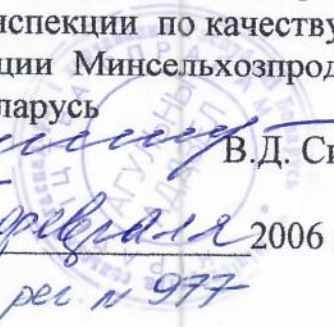 нспекции по качеству
ции Минсельхозпрод
ларусь
В.Д. Св
февраля 2006
рег. N 977